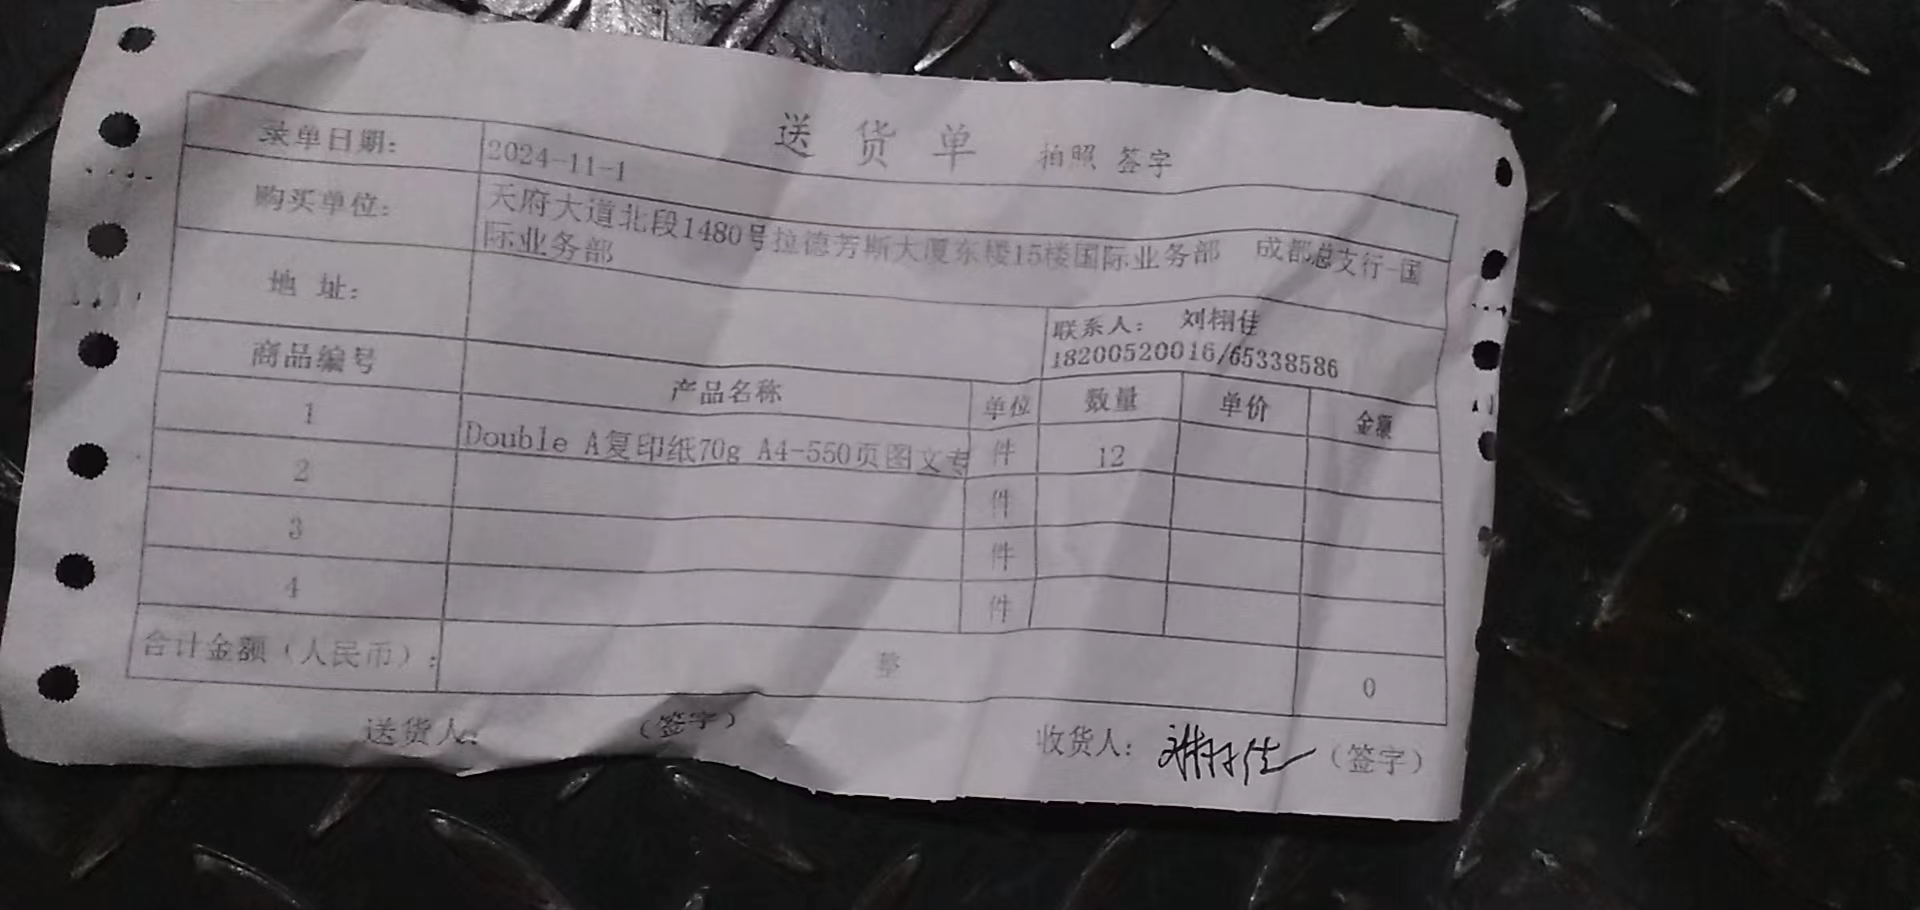 送 货 单 拍照 签字
录单日期： 2024-11-1
购买单位： 天府大道北段1480号拉德芳斯大厦东楼15楼国际业务部 成都总支行-国
际业务部
地 址：
联系人： 刘栩佳
18200520016/65338586
商品编号 产品名称 单位 数量 单价 金额
1 Double A复印纸70g A4-550页图文专 件 12
2 件
3 件
4 件
合计金额（人民币）： 整 0
送货人： （签字） 收货人： 刘栩佳 （签字）